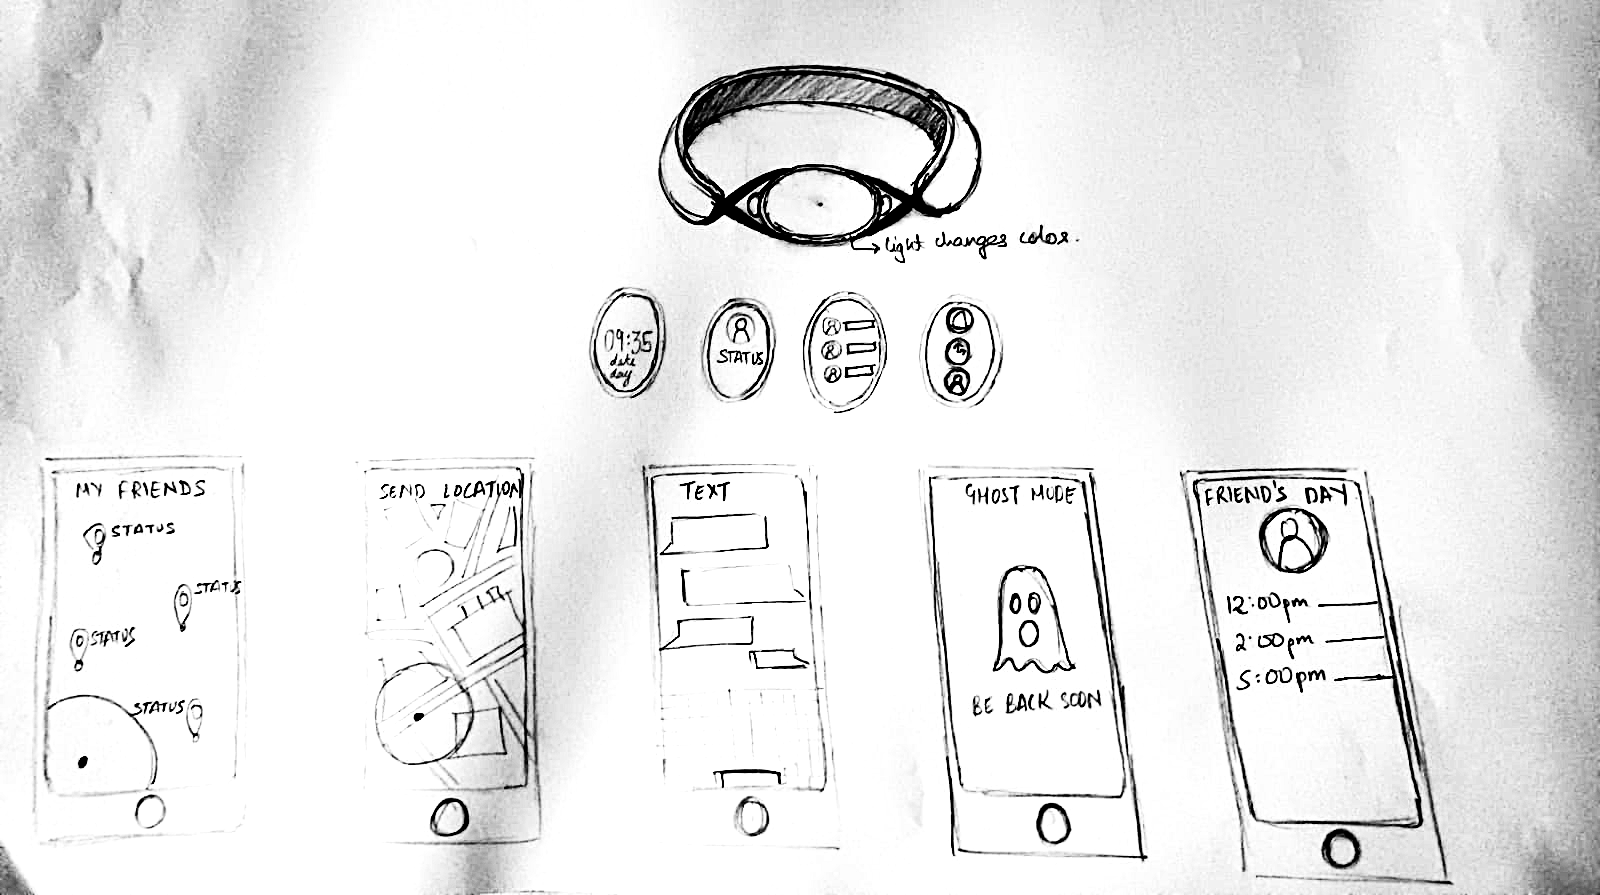 light changes color.
09:35
date
day
STATUS
MY FRIENDS
STATUS
STATUS
STATUS
STATUS
SEND LOCATION
TEXT
GHOST MODE
BE BACK SOON
FRIEND'S DAY
12:00pm
2:00pm
5:00pm